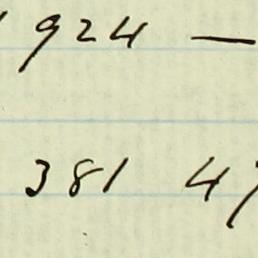 1924 —
381 47